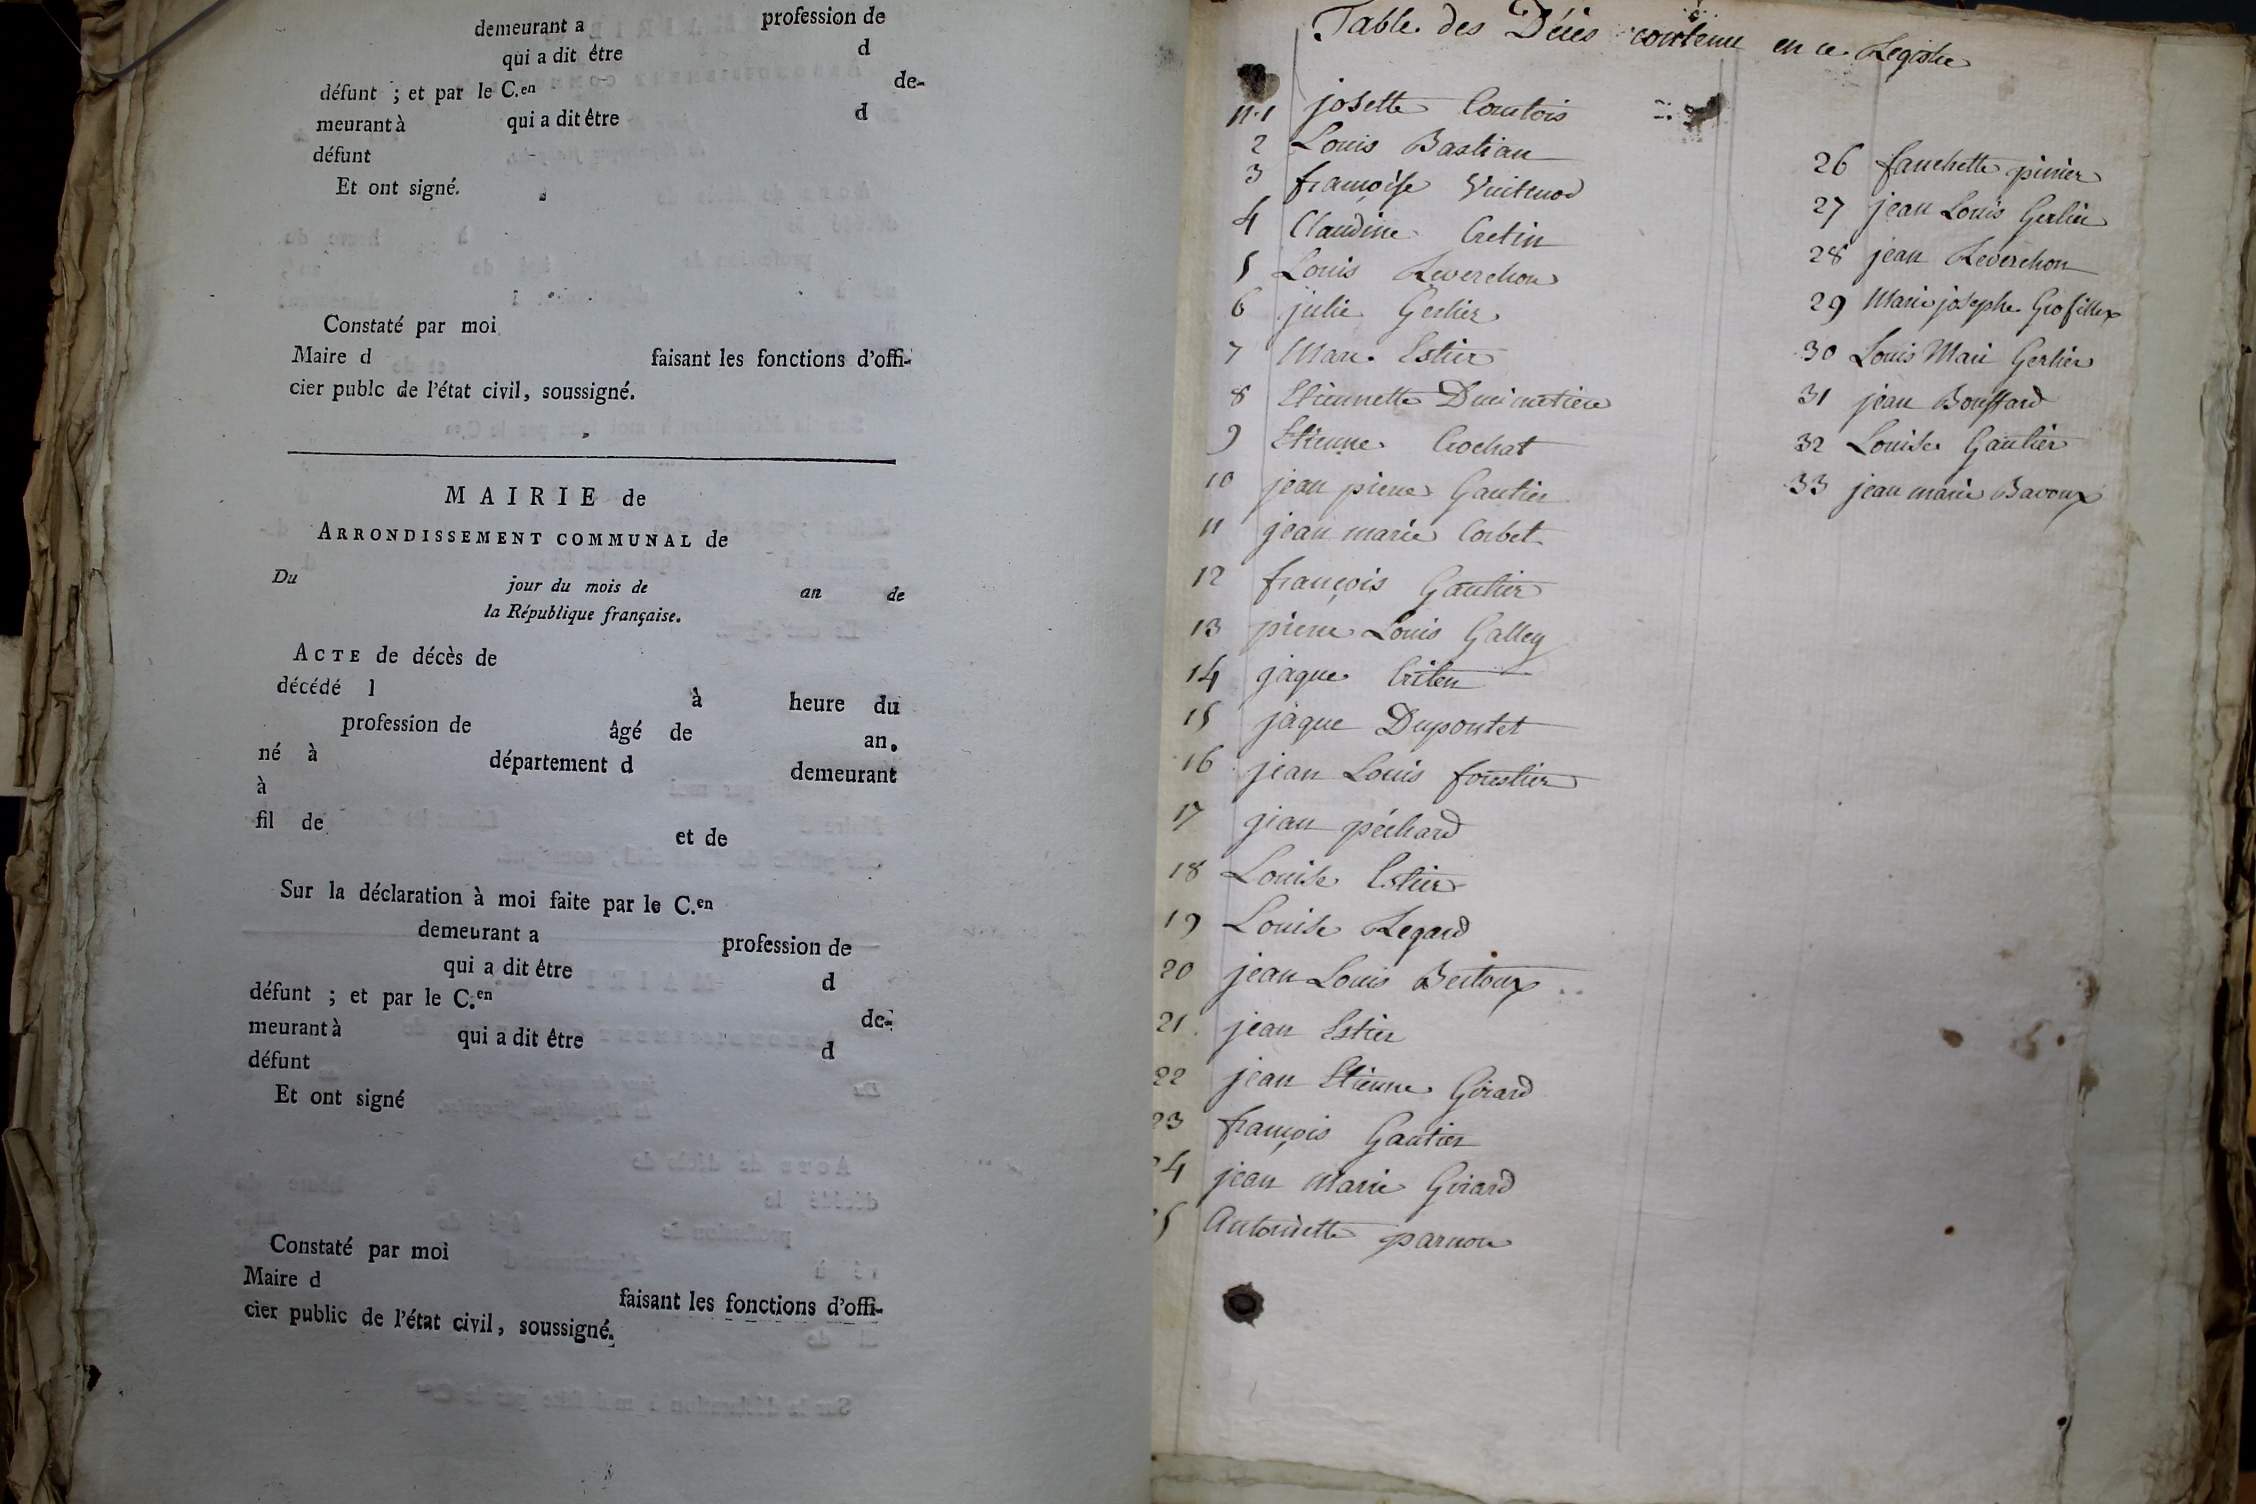 demeurant a profession de
qui a dit être d
défunt ; et par le C.en de-
meurant à qui a dit être d
défunt
Et ont signé.
Constaté par moi
Maire d faisant les fonctions d'offi-
cier publc de l'état civil, soussigné.
MAIRIE de
ARRONDISSEMENT COMMUNAL de
Du jour du mois de an de
la République française.
ACTE de décès de
décédé l à heure du
profession de âgé de an.
né à département d demeurant
à
fil de et de
Sur la déclaration à moi faite par le C.en
demeurant a profession de
qui a dit être d
défunt ; et par le C.en de-
meurant à qui a dit être d
défunt
Et ont signé
Constaté par moi
Maire d faisant les fonctions d'offi-
cier public de l'état civil, soussigné.
Table des Décès contenu en ce Registre
n.1 josette Comtois
2 Louis Bastian
3 françoise Vuitenod
4 Claudine Cretin
5 Louis Reverchon
6 julie Gerlier
7 Marc Estier
8 Etiennette Ducimetiere
9 Etienne Crochat
10 jean pierre Gautier
11 jean marie Corbet
12 françois Gautier
13 pierre Louis Galley
14 jaque
15 jaque Dupontet
16 jean Louis forestier
17 jean péchard
18 Louise Estier
19 Louise Regard
20 jean Louis Bertoux
21 jean Estier
22 jean Etienne Girard
23 françois Gautier
24 jean Marie Girard
25 Antoinette
26 fanchette pinier
27 jean Louis Gerlier
28 jean Reverchon
29 Marie josephe Grofillex
30 Louis Mari Gerlier
31 jean Bouffard
32 Louise Gautier
33 jean marie Bavoux